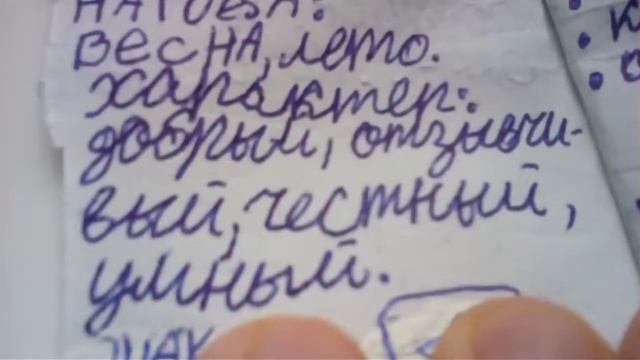 ВЕСНА, лето.
характер:
добрый, отзывчи-
вый, честный,
умный.